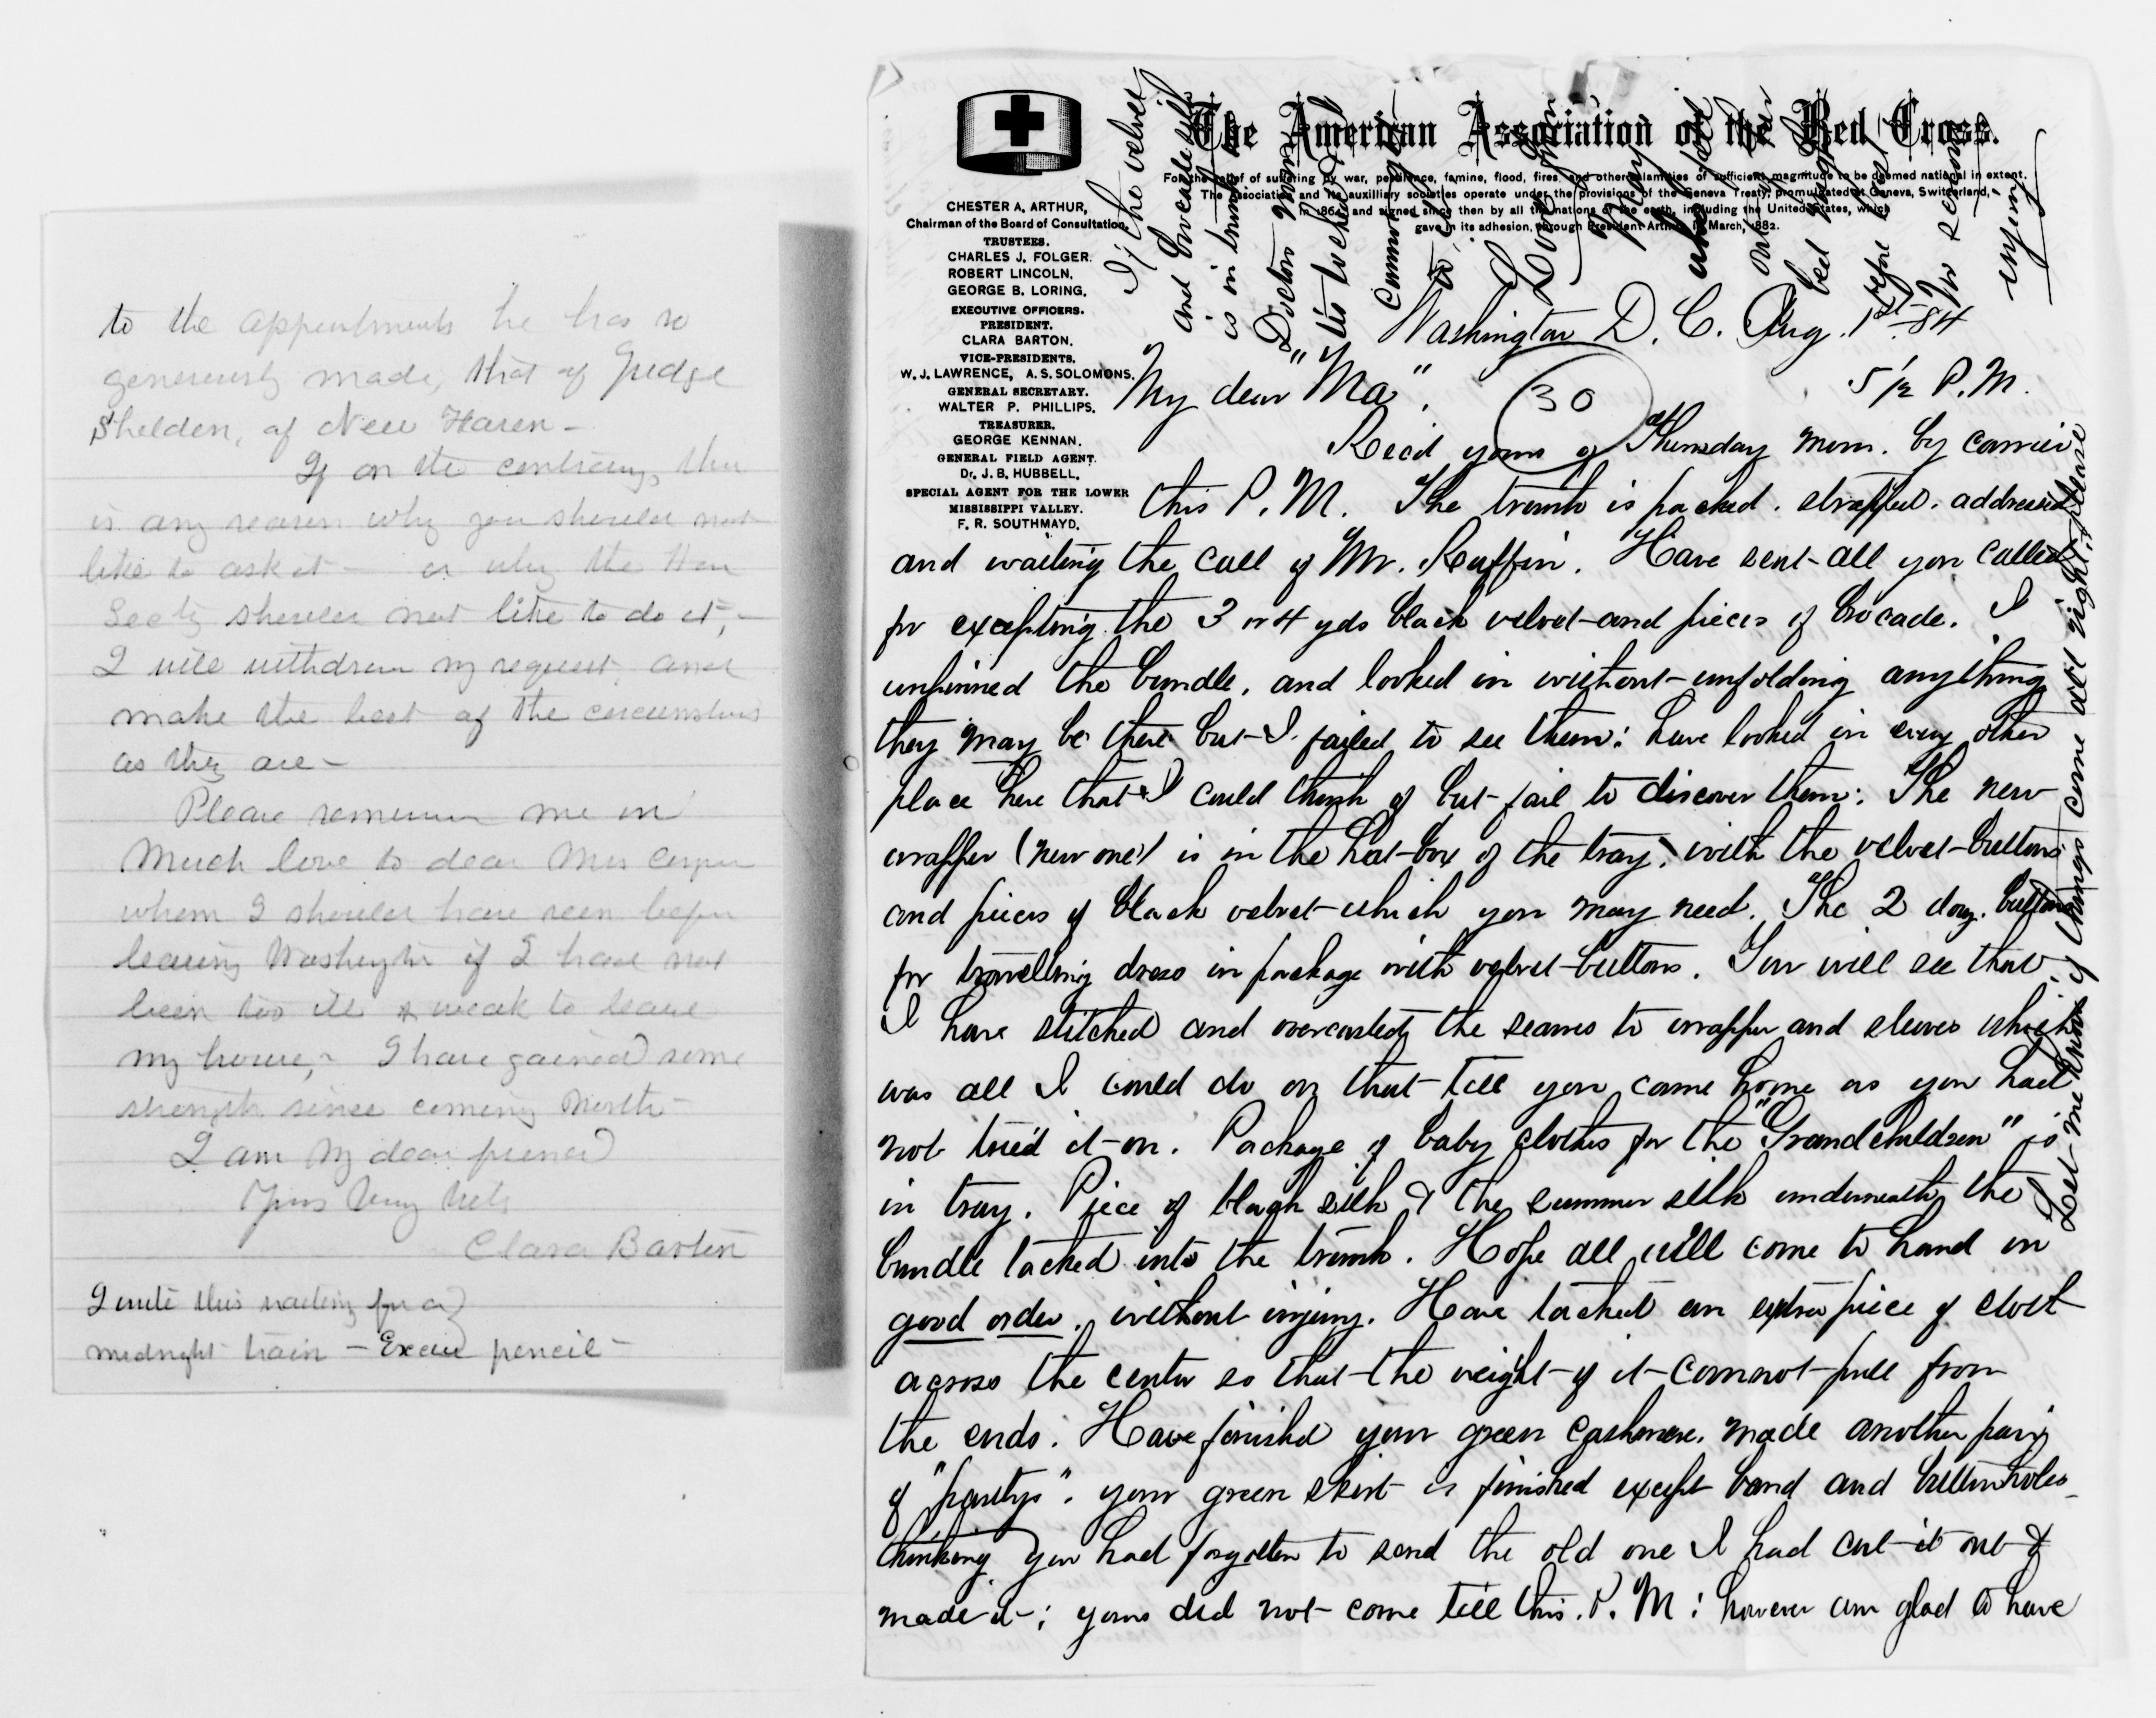 to the appointments he has so
generously made, that of Judge
Sheldon, of New Haven –
If on the contrary, ther
is any reason why you should not
like to ask it — or why the Hon
Secty should not like to do it, –
I will withdraw my request, and
make the best of the circumstances
as they are –
Please remember me in
much love to dear Mrs
whom I should have seen before
leaving Washington if I had not
been too ill & weak to leave
my house, – I have gained some
strength since coming North –
I am my dear friend
Yours Very Truly
Clara Barton
I write this waiting for a
midnight train – Excuse pencil –
The American Association of the Red Cross.
For the relief of suffering by war, pestilence, famine, flood, fires, and other calamities of sufficient magnitude to be deemed national in extent.
The Association and its auxilliary societies operate under the provisions of the Geneva Treaty, promulgated at Geneva, Switzerland,
in 1864, and signed since then by all the nations of the earth, including the United States, which
gave in its adhesion, through President Arthur in March, 1882.
CHESTER A. ARTHUR,
Chairman of the Board of Consultation.
TRUSTEES.
CHARLES J. FOLGER.
ROBERT LINCOLN.
GEORGE B. LORING.
EXECUTIVE OFFICERS.
PRESIDENT.
CLARA BARTON.
VICE-PRESIDENTS.
W. J. LAWRENCE, A. S. SOLOMONS.
GENERAL SECRETARY.
WALTER P. PHILLIPS.
TREASURER.
GEORGE KENNAN.
GENERAL FIELD AGENT.
Dr. J. B. HUBBELL.
SPECIAL AGENT FOR THE LOWER
MISSISSIPPI VALLEY.
F. R. SOUTHMAYD.
If the velvet
and brocade silk
is in trunk in
Doctors room
tis locked & I
cannot get
to it
Look in
My
under
our
bed
before
for
injury
Washington D. C. Aug. 1st – 84
5 1/2 P.M.
30
My dear "Ma".
Rec'd yours of Thursday morn. by carrier
this P.M. The trunk is packed. strapped. addressed
and waiting the call of Mr. Ruffin. Have sent all you called
for excepting the 3 or 4 yds black velvet and pieces of brocade. I
unpinned the bundle, and looked in without unfolding anything
they may be there but I failed to see them: have looked in every other
place here that I could think of but fail to discover them: The new
wrapper (new one) is in the hat-box of the tray, with the velvet-buttons
and pieces of black velvet which you may need. The 2 doz. buttons
for travelling dress in package with velvet-buttons. You will see that
I have stitched and overcasted the seams to wrapper and sleeves which
was all I could do on that till you come home as you had
not tried it on. Package of baby clothes for the "Grandchildren" is
in tray. Piece of black silk & the summer silk underneath the
bundle tacked into the trunk. Hope all will come to hand in
good order, without injury. Have tacked an extra piece of cloth
across the center so that the weight of it cannot pull from
the ends. Have finished your green cashmere, made another pair
of "pantys". your green skirt is finished except band and buttonholes
thinking you had forgotten to send the old one I had cut it out &
made it; yours did not come till this. P.M: however am glad to have
Let me know if things come all right, please